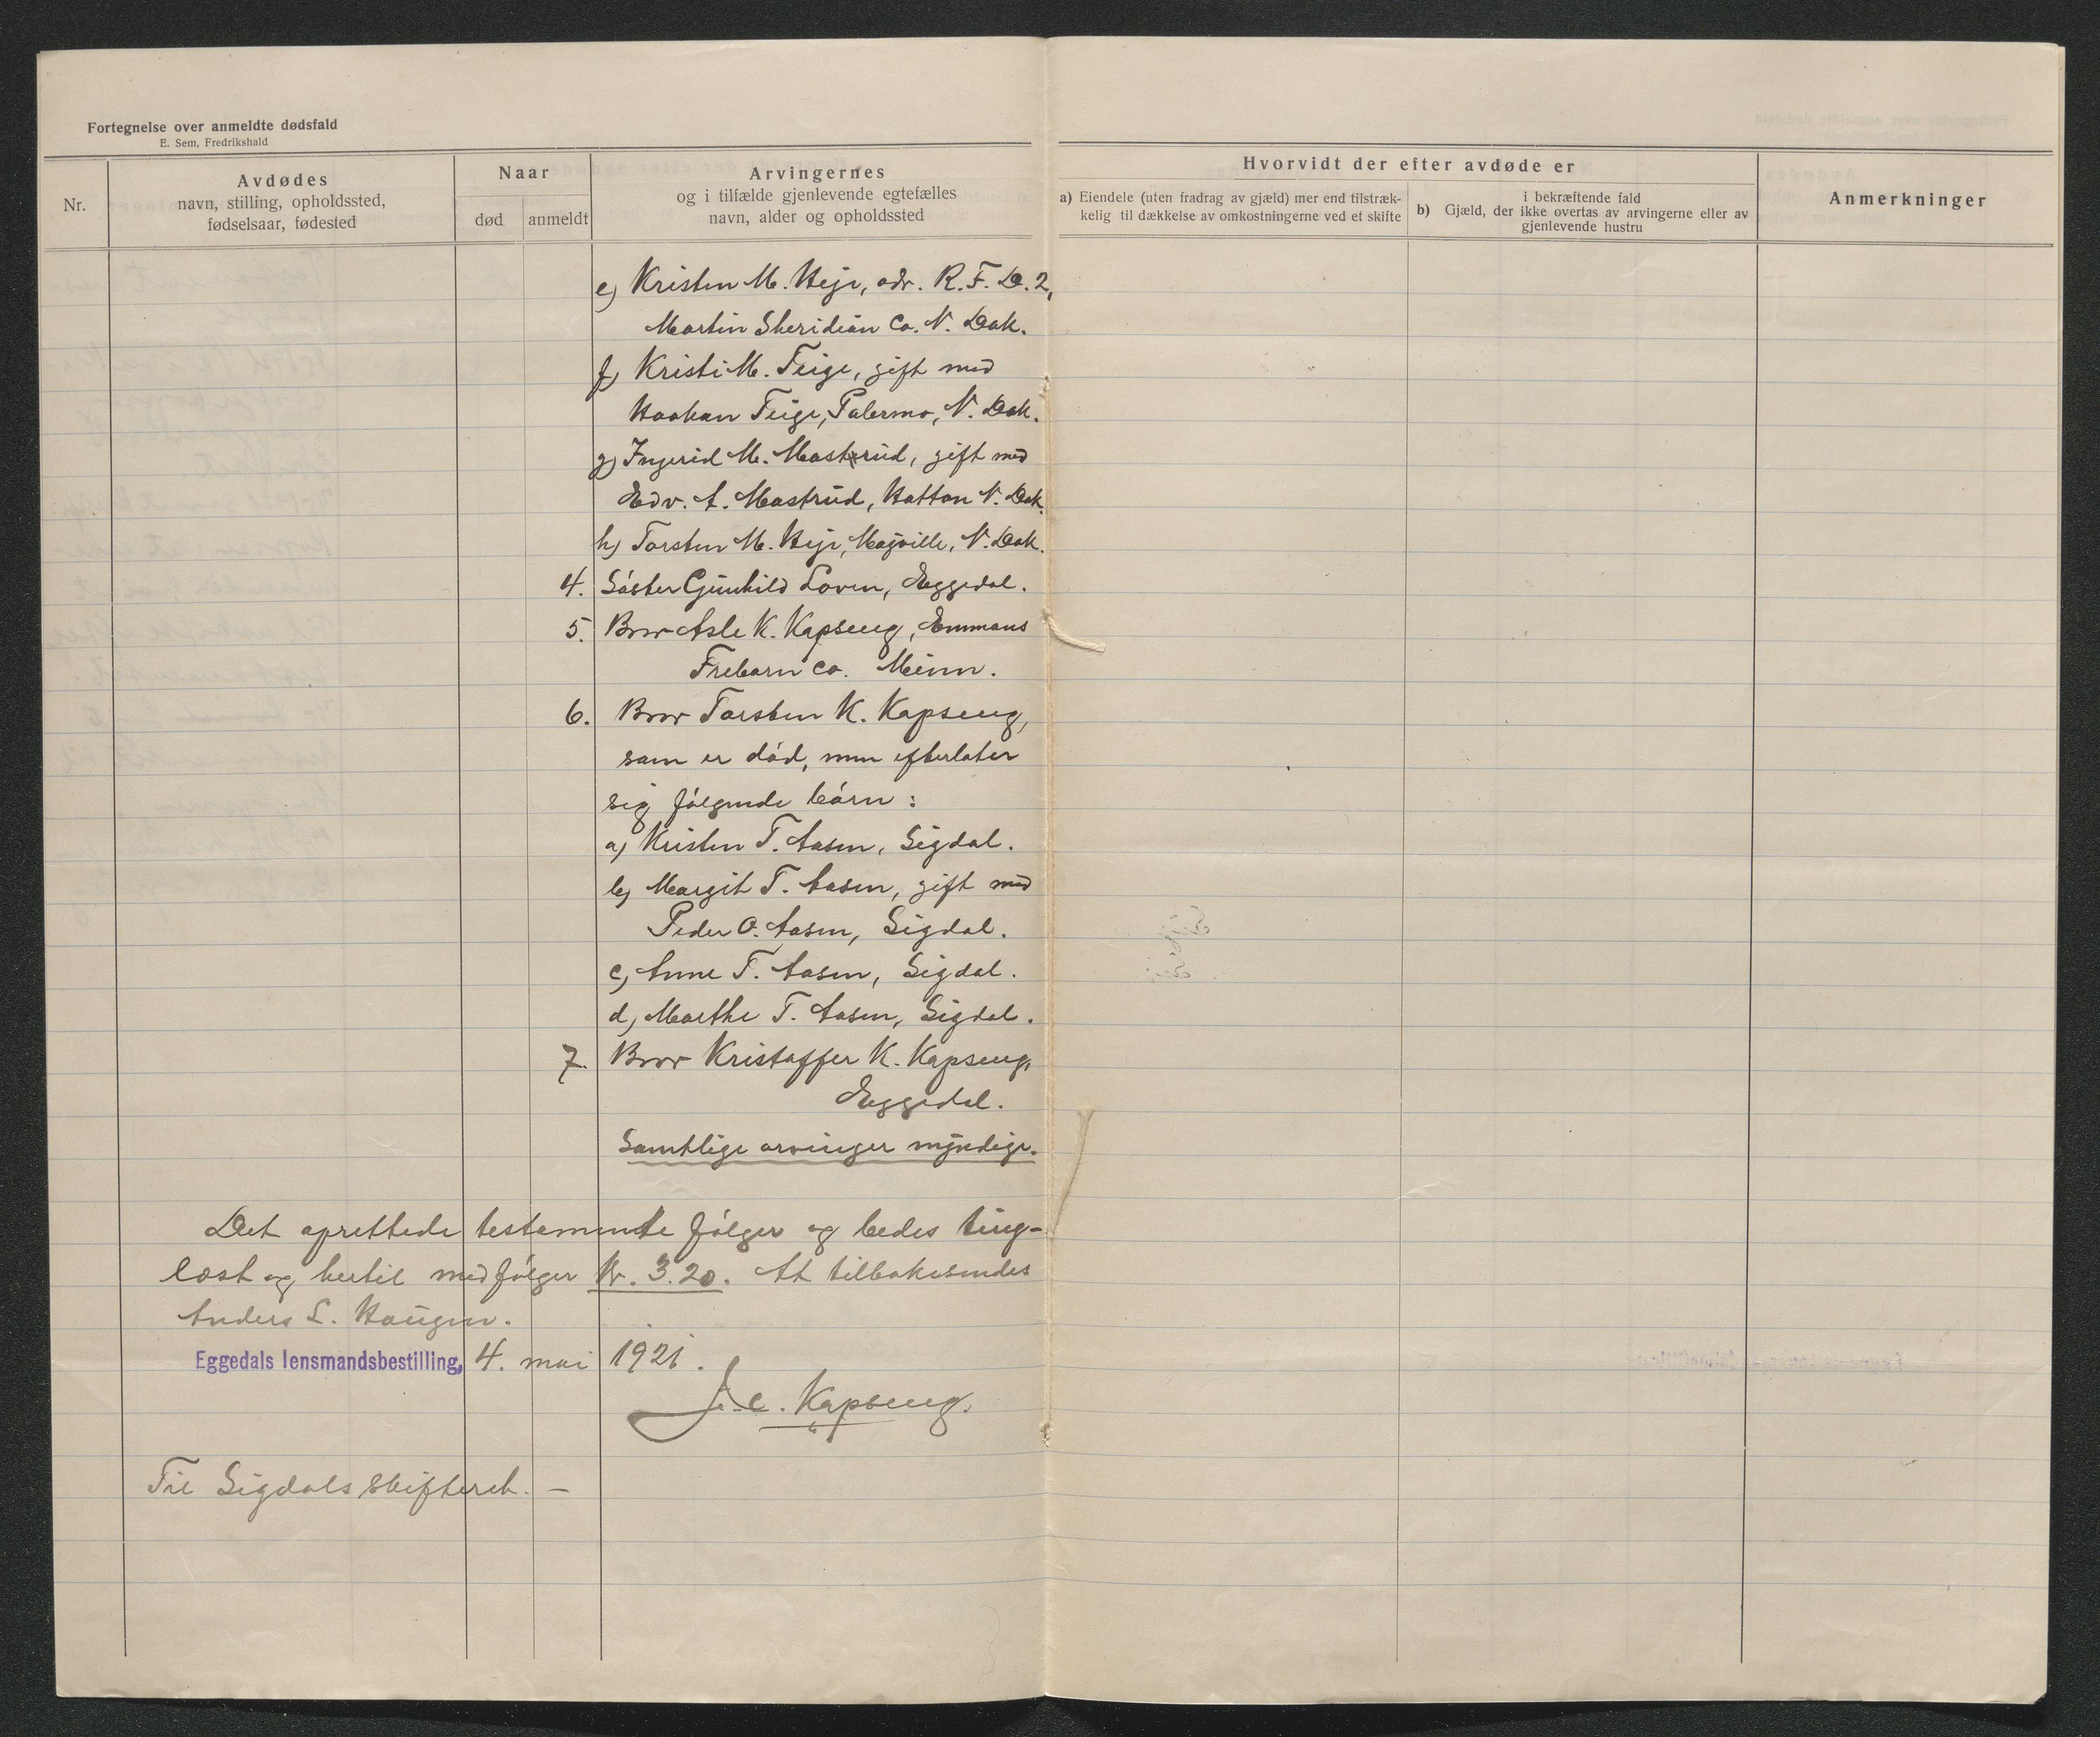 Fortegnelse over anmeldte dødsfald
E. Sem, Fredrikshald
Nr.
Avdødes
navn, stilling, opholdssted,
fødselsaar, fødested
Naar
død
anmeldt
Arvingernes
og i tilfælde gjenlevende egtefælles
navn, alder og opholdssted
Hvorvidt der efter avdøde er
a) Eiendele (uten fradrag av gjæld) mer end tilstræk-
kelig til dækkelse av omkostningerne ved et skifte
i bekræftende fald
b) Gjæld, der ikke overtas av arvingerne eller av
gjenlevende hustru
Anmerkninger
e) Kristen M. Heje, adr. R. F. D. 2,
Martin Sheridian Co. N. Dak.
f) Kristi M. Teige, gift med
Haakan Teige, Palermo, N. Dak.
g) Ingerid M. Mastrud, gift med
Edv. A. Mastrud, Hatton N. Dak.
h) Torsten M. Heje, Mayville, N. Dak.
4. Søster Gunhild Loven, Eggedal.
5. Bror Asle K. Kapseng, Emmons
Freborn Co. Minn.
6. Bror Torsten K. Kapseng,
som er død, men efterlater
sig følgende børn:
a) Kristen T. Aasen, Sigdal.
b) Margit T. Aasen, gift med
Peder O. Aasen, Sigdal.
c) Anne T. Aasen, Sigdal.
d) Marthe T. Aasen, Sigdal.
7. Bror Kristoffer K. Kapseng,
Eggedal.
Samtlige arvinger myndige.
Det oprettede testamente følger og bedes ting-
læst og hertil medfølger Kr. 3.20. At tilbakesendes
Anders L. Haugen.
Eggedals lensmandsbestilling, 4. mai 1921.
J. C. Kapseng.
Til Sigdals skifteret. —